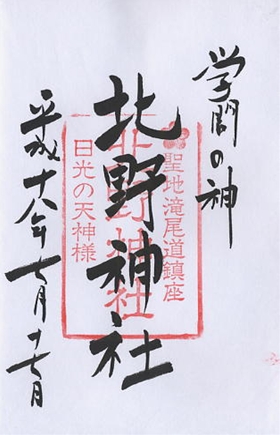 学問の神
北野神社
聖地滝尾道鎮座
北野神社
日光の天神様
平成十八年七月十七日